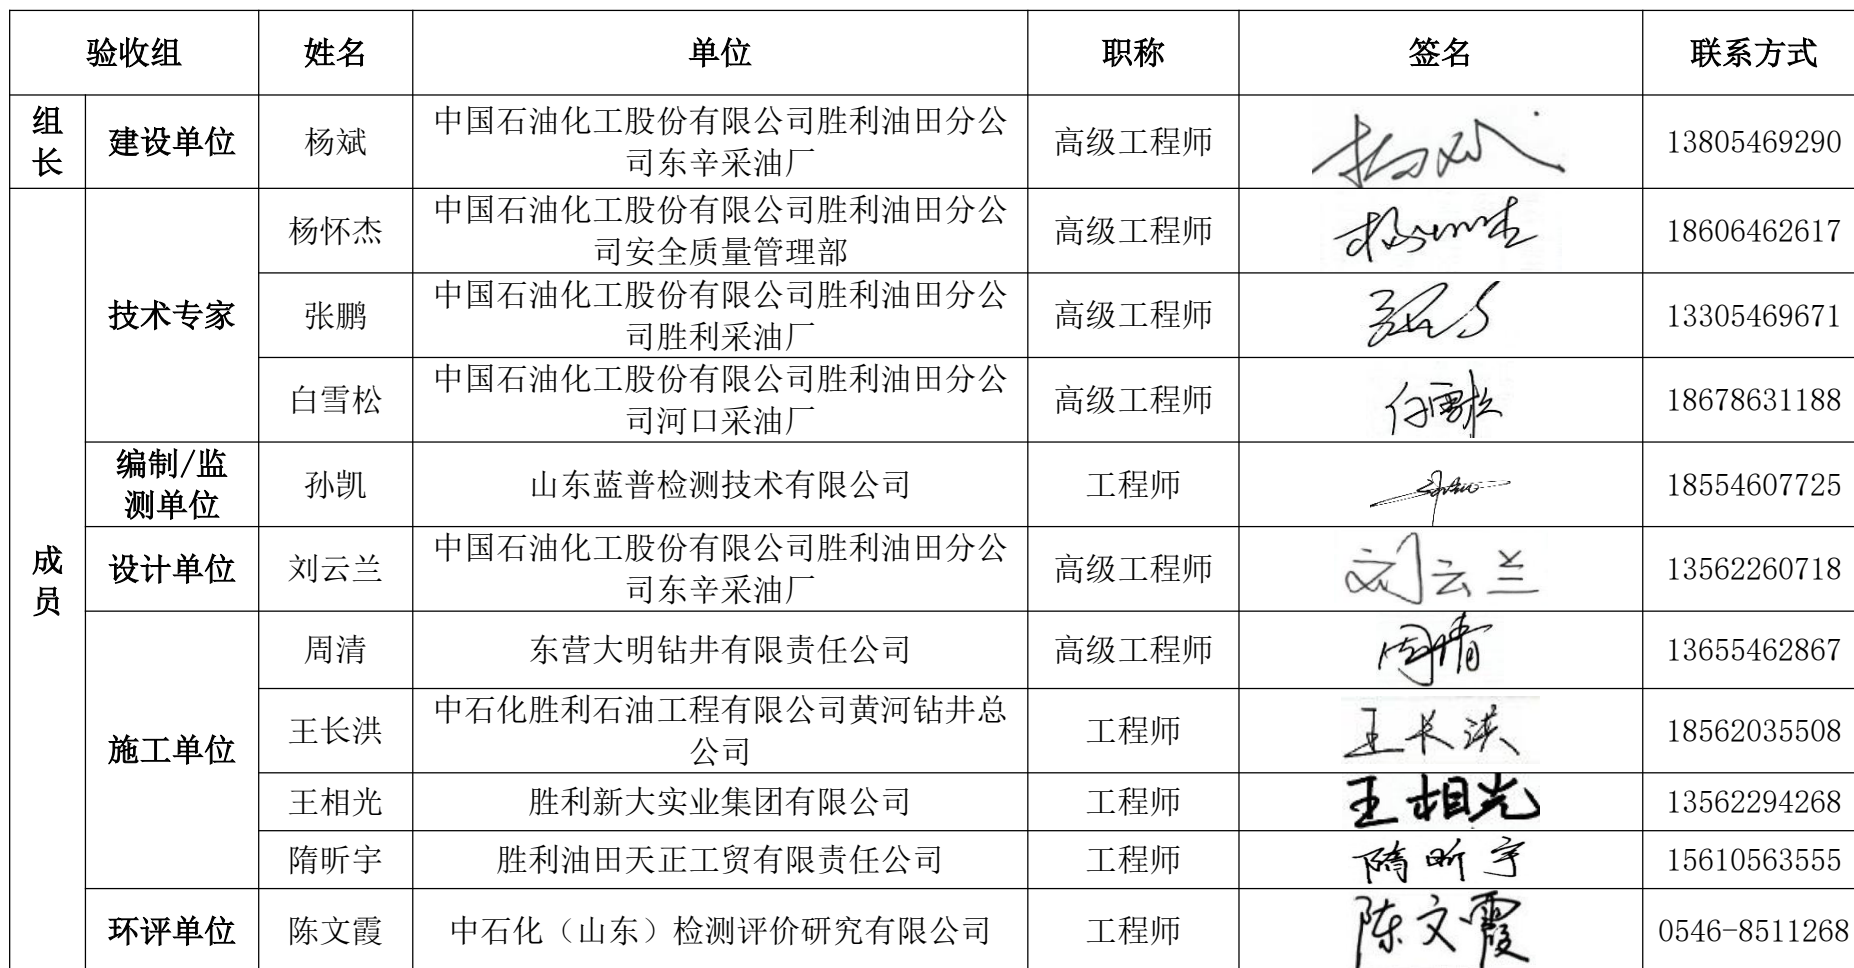 验收组 姓名 单位 职称 签名 联系方式
组长 建设单位 杨斌 中国石油化工股份有限公司胜利油田分公 高级工程师 杨斌 13805469290
司东辛采油厂
成员 技术专家 杨怀杰 中国石油化工股份有限公司胜利油田分公 高级工程师 杨怀杰 18606462617
司安全质量管理部
张鹏 中国石油化工股份有限公司胜利油田分公 高级工程师 13305469671
司胜利采油厂
白雪松 中国石油化工股份有限公司胜利油田分公 高级工程师 白雪松 18678631188
司河口采油厂
编制/监 孙凯 山东蓝普检测技术有限公司 工程师 18554607725
测单位
设计单位 刘云兰 中国石油化工股份有限公司胜利油田分公 高级工程师 刘云兰 13562260718
司东辛采油厂
施工单位 周清 东营大明钻井有限责任公司 高级工程师 周清 13655462867
王长洪 中石化胜利石油工程有限公司黄河钻井总 工程师 王长洪 18562035508
公司
王相光 胜利新大实业集团有限公司 工程师 王相光 13562294268
隋昕宇 胜利油田天正工贸有限责任公司 工程师 隋昕宇 15610563555
环评单位 陈文霞 中石化（山东）检测评价研究有限公司 工程师 陈文霞 0546-8511268